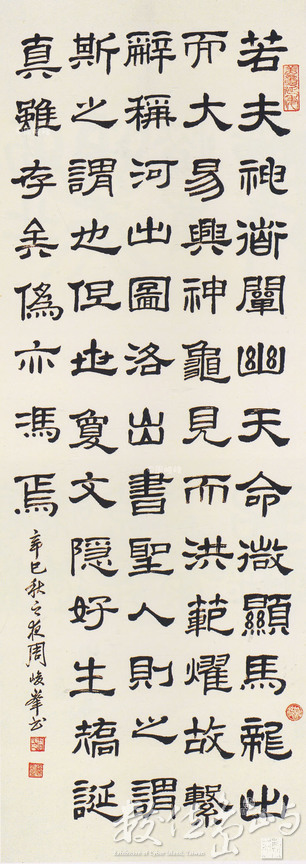 若夫神道闡幽天命微顯馬龍出
而大易興神龜見而洪範耀故繫
辭稱河出圖洛出書聖人則之謂
斯之謂也但世夐文隱好生矯誕
真雖存矣偽亦馮焉
辛巳秋之夜周峻峯書